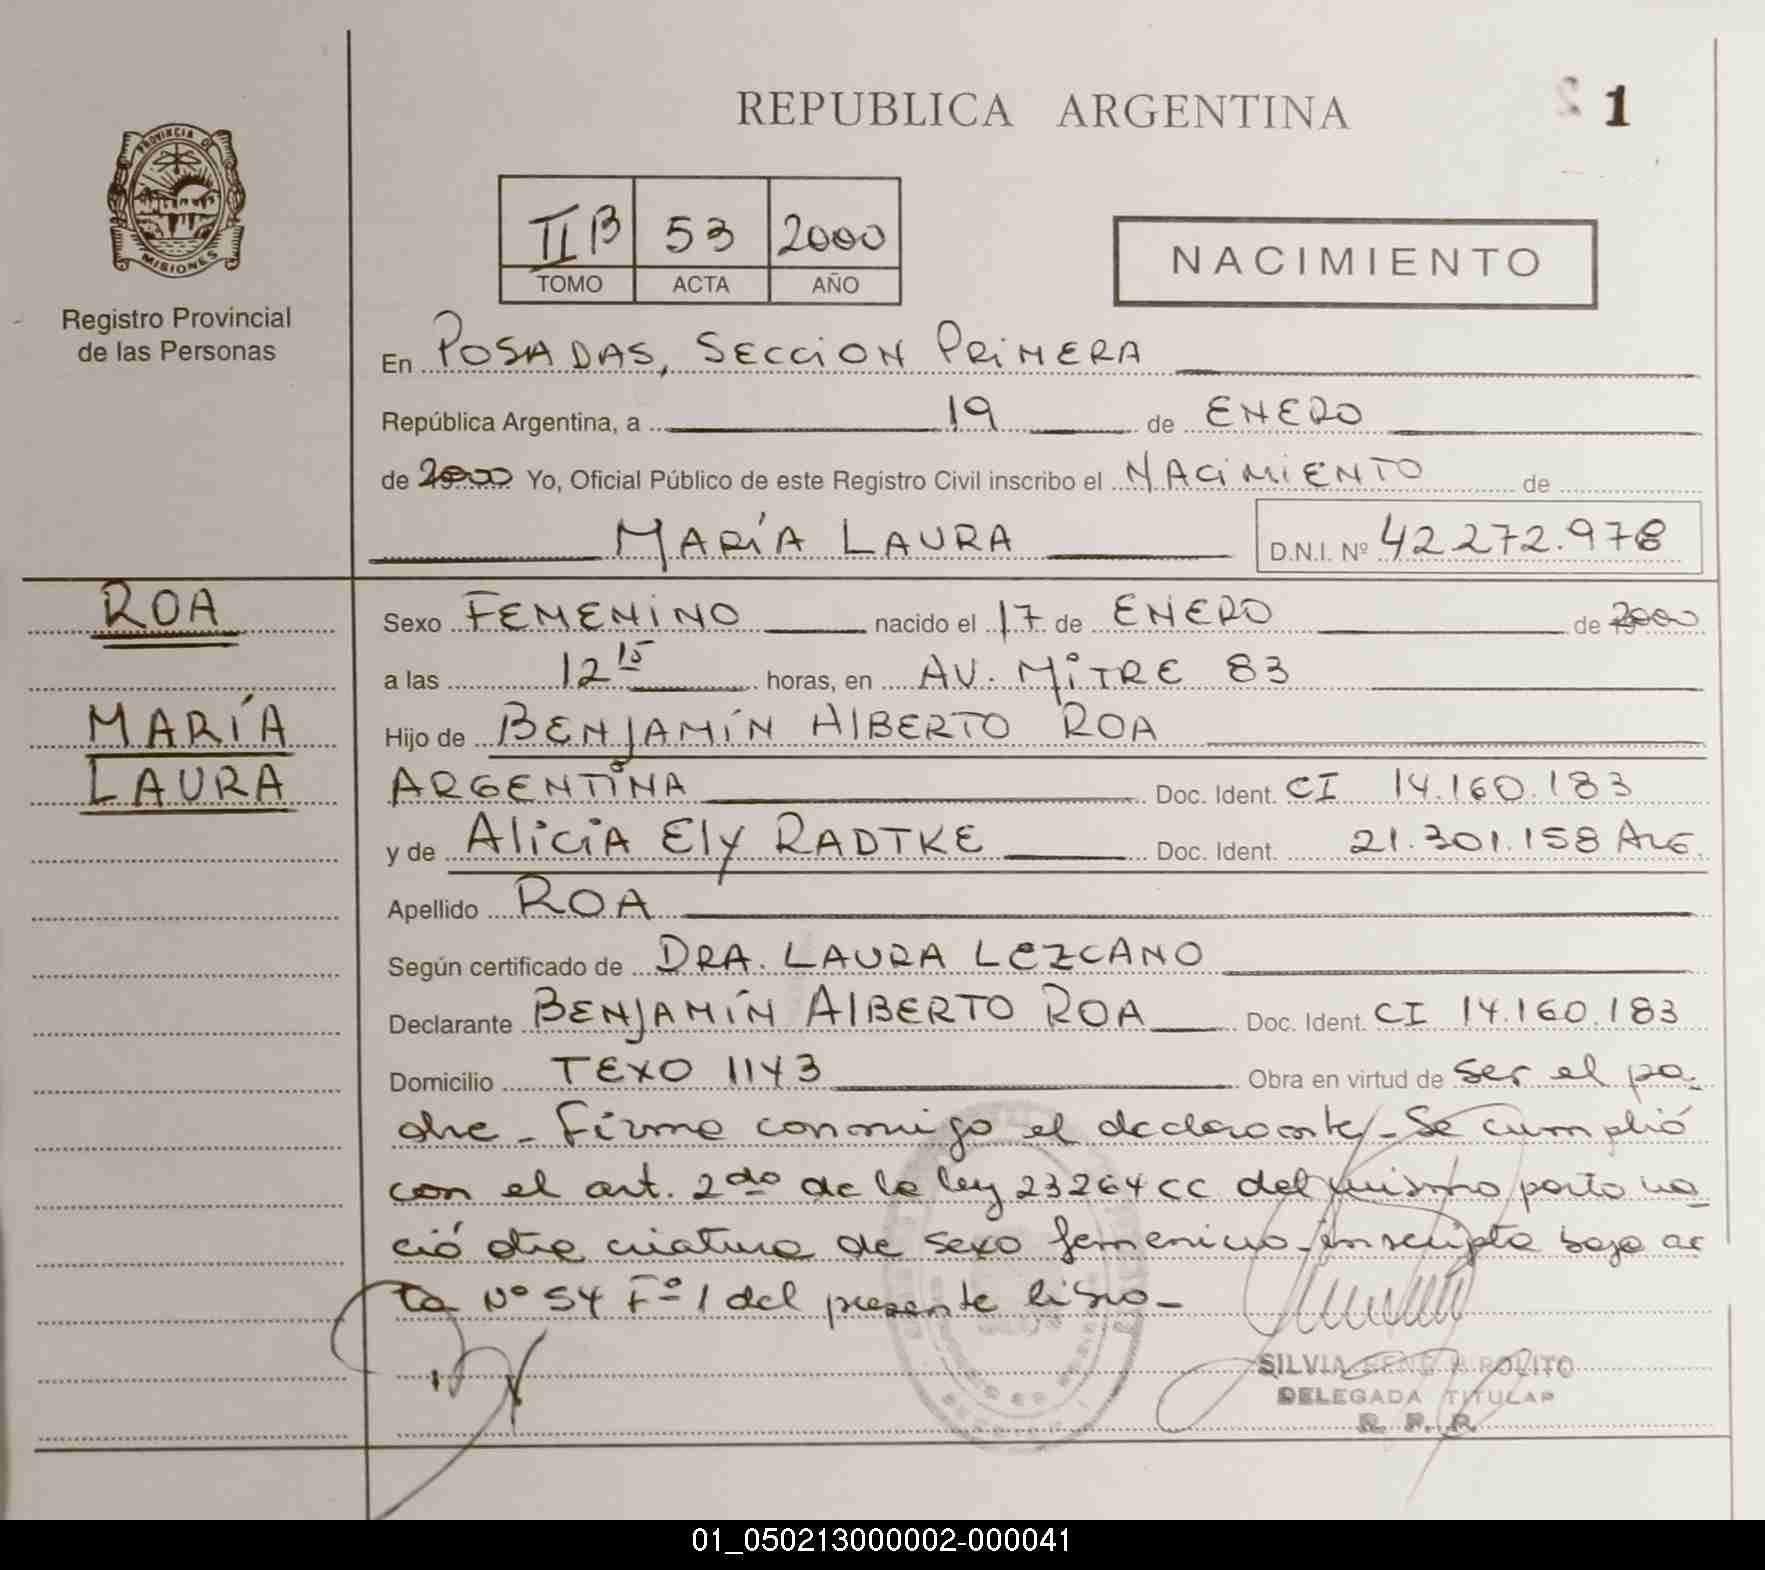 REPUBLICA ARGENTINA
1
PROVINCIA DE
MISIONES
Registro Provincial
de las Personas
II B 53 2000
TOMO ACTA AÑO
NACIMIENTO
En POSADAS, SECCION PRIMERA
República Argentina, a 19 de ENERO
de 2000 Yo, Oficial Público de este Registro Civil inscribo el NACIMIENTO de
MARÍA LAURA D.N.I. Nº 42272.978
ROA
Sexo FEMENINO nacido el 17 de ENERO de 2000
a las 12 15 horas, en AV. MITRE 83
MARÍA
Hijo de BENJAMÍN ALBERTO ROA
LAURA
ARGENTINA Doc. Ident. CI 14.160.183
y de Alicia Ely RADTKE Doc. Ident. 21.301.158 ARG.
Apellido ROA
Según certificado de DRA. LAURA LEZCANO
Declarante BENJAMÍN ALBERTO ROA Doc. Ident. CI 14.160.183
Domicilio TEXO 1143 Obra en virtud de ser el pa-
dre - Firma conmigo el declarante - Se cumplió
con el art. 2do de la ley 23264 CC del mismo parto na-
ció otra criatura de sexo femenino - inscripta bajo ac
ta Nº 54 Fº 1 del presente libro -
SILVIA HIPOLITO
DELEGADA TITULAR
R. P. P.
01_050213000002-000041